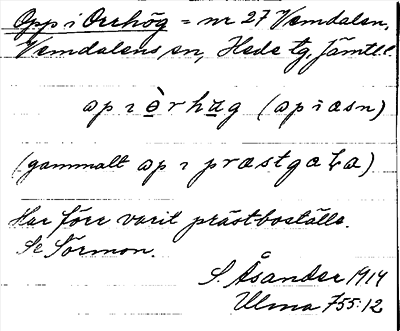 Opp i Orrhög = nr 27 Vemdalen,
Vemdalens sn, Hede tg, Jämtl.l.
op ı èrhꭤg (op i æsn)
(gammalt op ı præstgaƚa)
Har förr varit prästboställe.
Se Sörmon.
S. Åsander 1914
Ulma 755:12